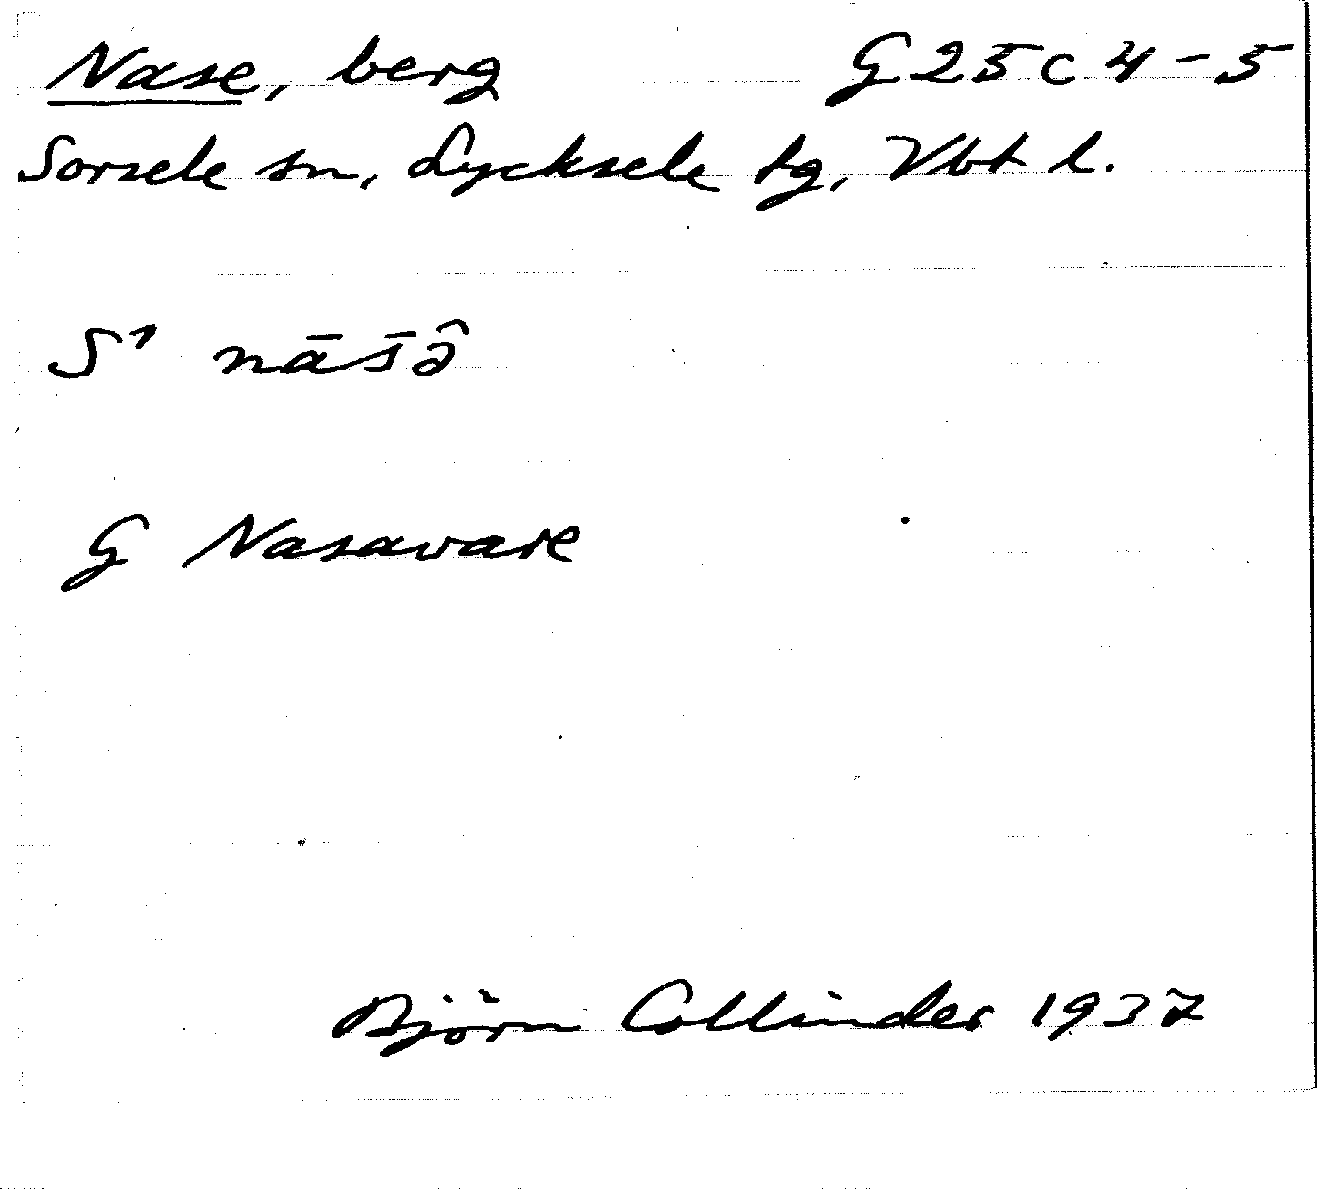 Nase, berg G 25 c 4-5
Sorsele sn, Lycksele tg, Vbt l.
S' nās̄ə̂
G Nasavare
Björn Collinder 1937